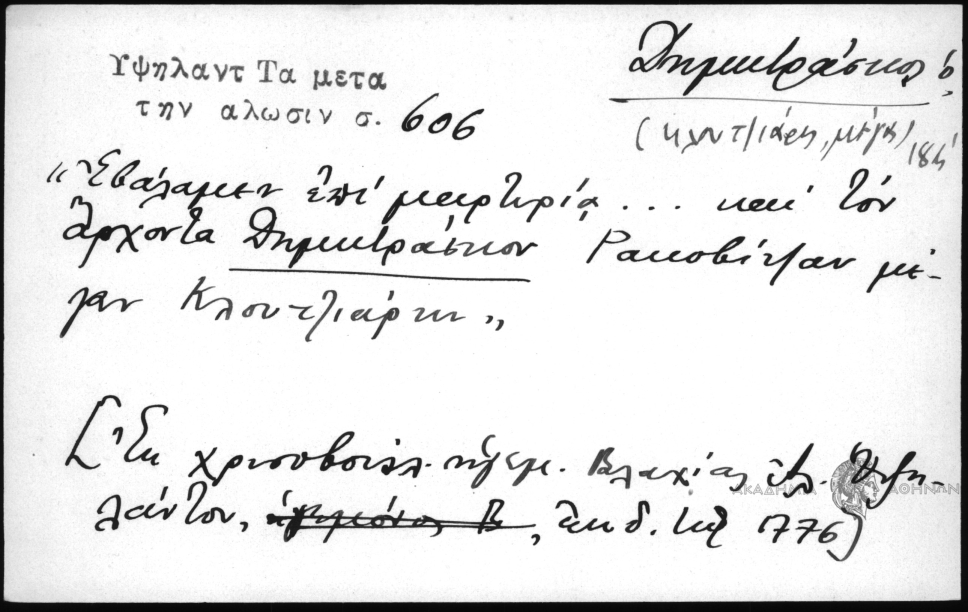 Υψηλαντ Τα μετα
την αλωσιν σ. 606
Δημητράσκος ὁ
(κλουτζιάρης, μέγας)
"Ἐβάλαμεν ἐπί μαρτυρίᾳ ... καί τόν
ἄρχοντα Δημητράσκον Ρακοβίτζαν μέ-
γαν Κλουτζιάρην"
[Ἐκ χρυσοβούλλ. ἡγεμ. Βλαχίας Ἀλ. Ὑψη-
λάντου, ἐκδ. τῷ 1776]
ΑΚΑΔΗΜΙΑ ΑΘΗΝΩΝ